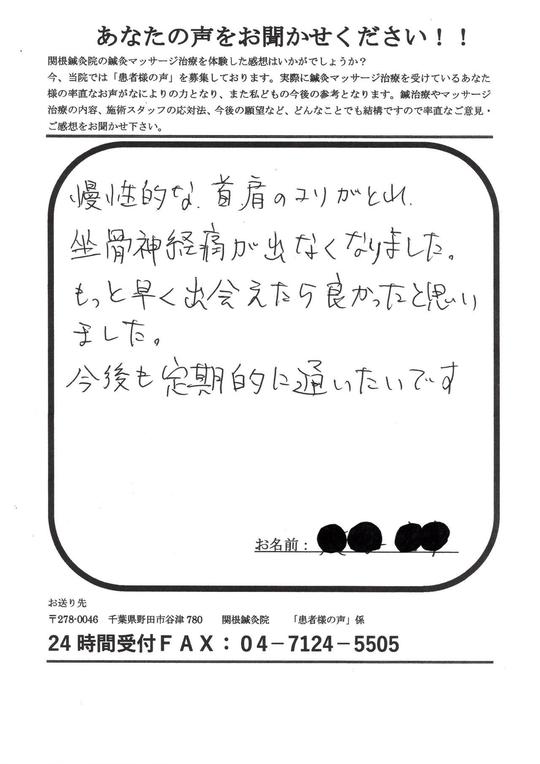 あなたの声をお聞かせください！！
関根鍼灸院の鍼灸マッサージ治療を体験した感想はいかがでしょうか？
今、当院では「患者様の声」を募集しております。実際に鍼灸マッサージ治療を受けているあなた
様の率直なお声がなによりの力となり、また私どもの今後の参考となります。鍼治療やマッサージ
治療の内容、施術スタッフの応対法、今後の願望など、どんなことでも結構ですので率直なご意見・
ご感想をお聞かせ下さい。
慢性的な、首肩のコリがとれ、
坐骨神経痛が出なくなりました。
もっと早く出会えたら良かったと思い
ました。
今後も定期的に通いたいです
お名前：
お送り先
〒278-0046　千葉県野田市谷津 780　関根鍼灸院　「患者様の声」係
24 時間受付ＦＡＸ：０４－7124－5505